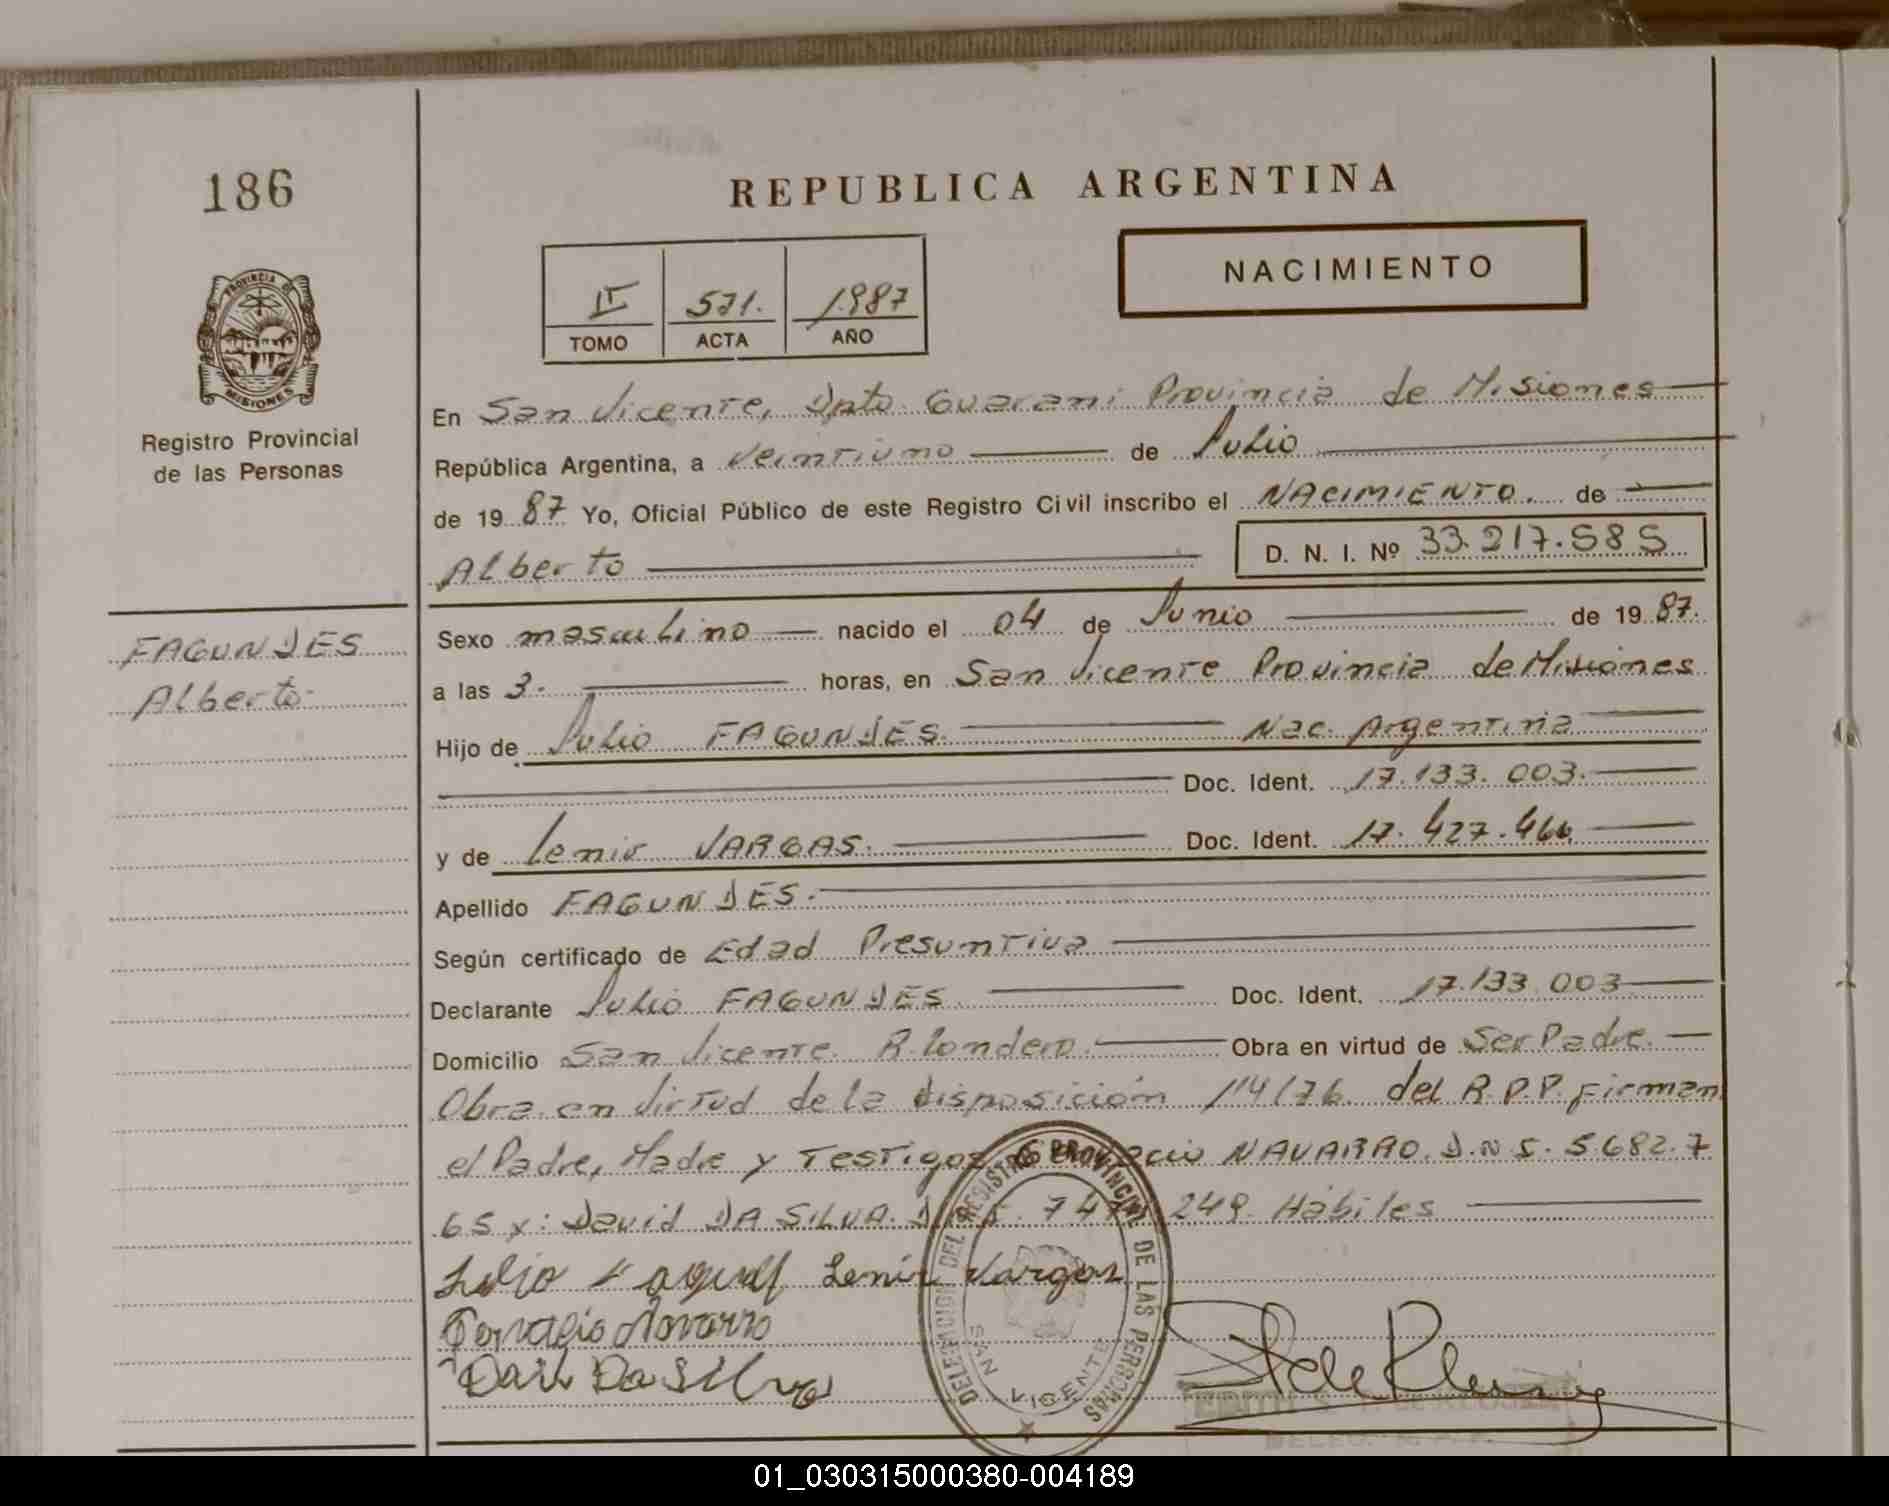 186
REPUBLICA ARGENTINA
NACIMIENTO
II 571. 1.987
TOMO ACTA AÑO
PROVINCIA DE
MISIONES
Registro Provincial
de las Personas
En San Vicente, Dpto. Guarani Provincia de Misiones
República Argentina, a Veintiuno de Julio
de 19 87 Yo, Oficial Público de este Registro Civil inscribo el NACIMIENTO. de
Alberto D. N. I. Nº 33.217.585
FAGUNDES
Alberto
Sexo masculino nacido el 04 de Junio de 19 87.
a las 3. horas, en San Vicente Provincia de Misiones
Hijo de Julio FAGUNDES. Nac. Argentina
Doc. Ident. 17.133.003.
y de Lenir VARGAS. Doc. Ident. 17.427.466.
Apellido FAGUNDES.
Según certificado de Edad Presuntiva
Declarante Julio FAGUNDES. Doc. Ident. 17.133.003
Domicilio San Vicente. R. Londero. Obra en virtud de Ser Padre.
Obra en Virtud de la disposición 114/76 del R.P.P. firman
el Padre, Madre y Testigos NAVARRO. D.N.I. 5.682.7
65 y: David DA SILVA. 249. Hábiles
Julio Lenir Vargas
Navarro
Da Silva
DELEGACION DEL REGISTRO PROVINCIAL DE LAS PERSONAS
SAN VICENTE
EDITH
01_030315000380-004189